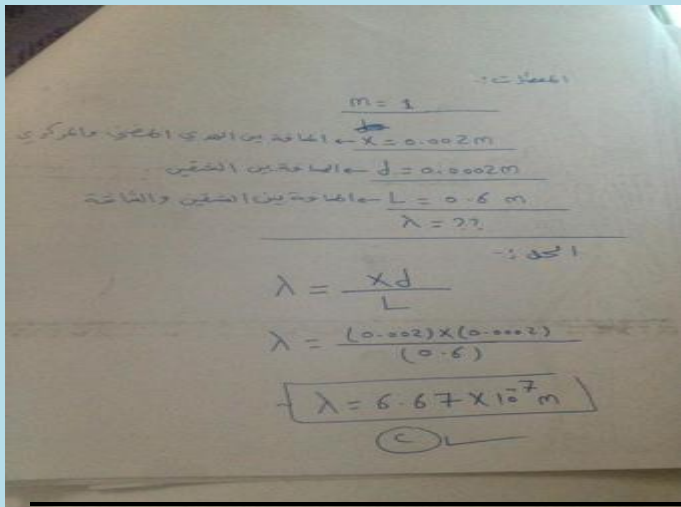 المعطيات:
m = 1
x = 0.002m ← المسافة بين الهدب المضيء والمركزي
d = 0.0002m ← المسافة بين الشقين
L = 0.6 m ← المسافة بين الشقين والشاشة
λ = ??
الحل:-
λ = xd / L
λ = (0.002)×(0.0002) / (0.6)
λ = 6.67 × 10⁻⁷ m
C